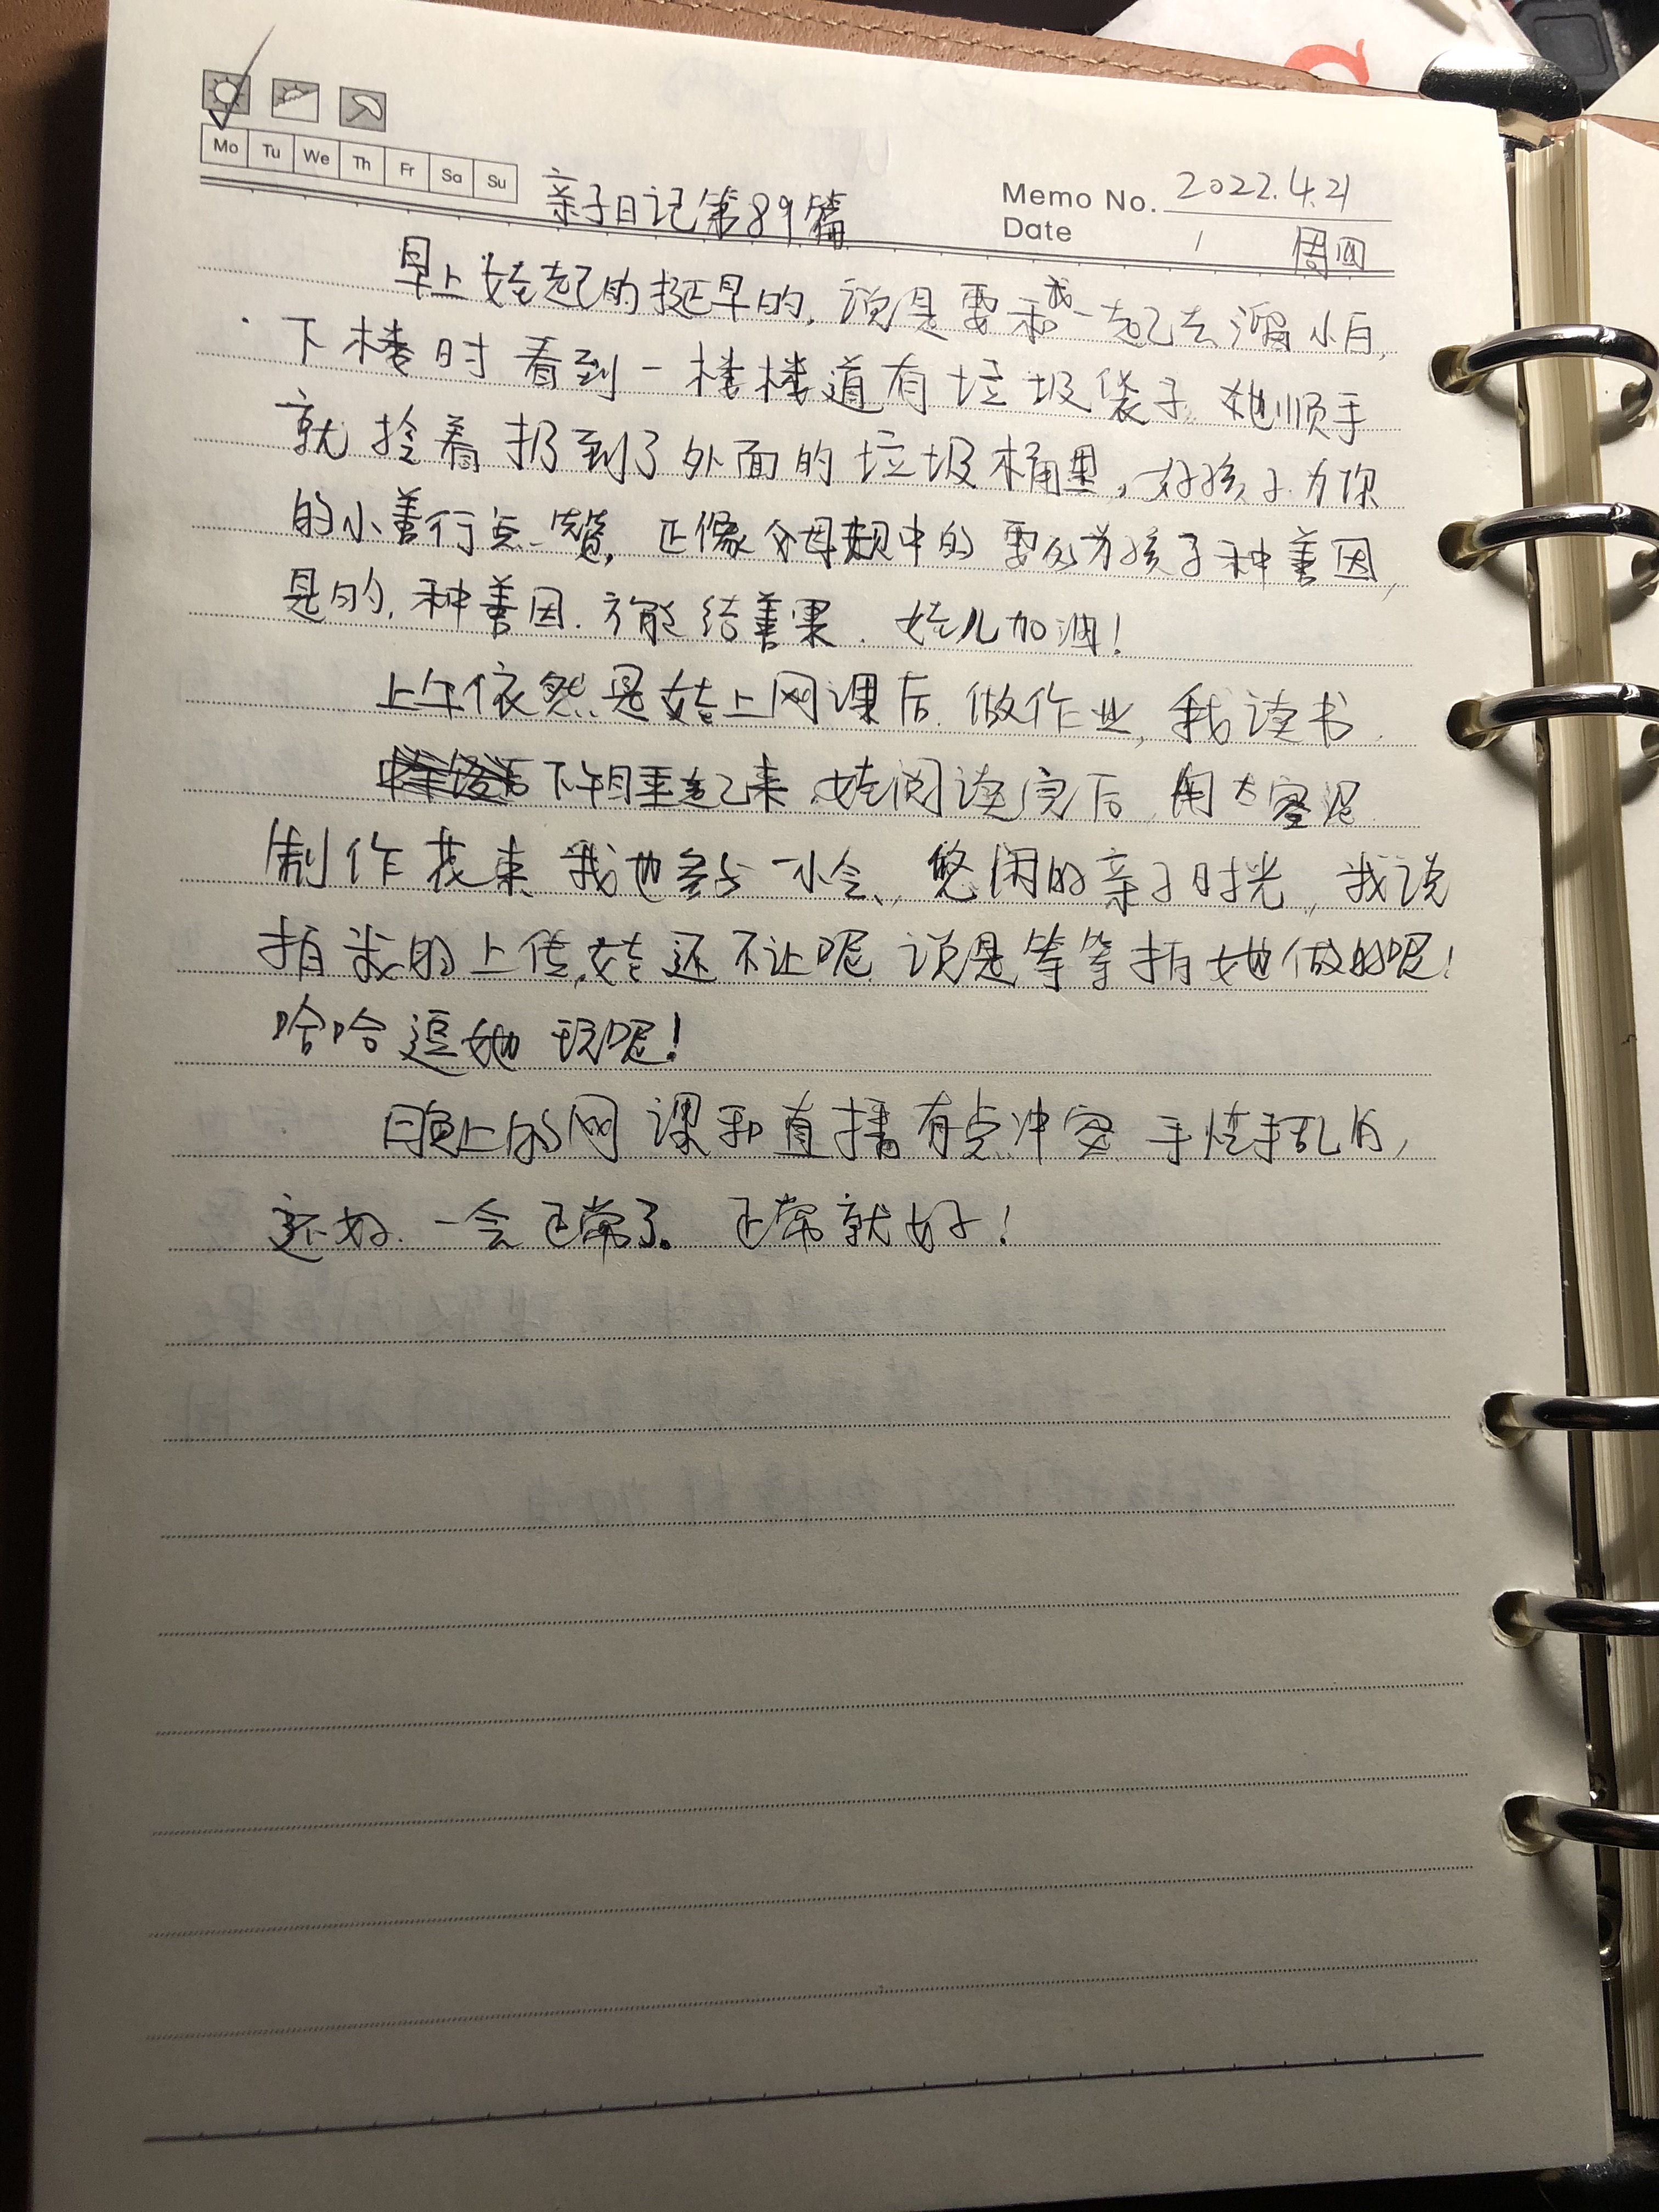 Mo Tu We Th Fr Sa Su
亲子日记第89篇
Memo No. 2022.4.21
Date / 周四
早上娃起的挺早的,说是要和我一起去溜小白,
下楼时看到一楼楼道有垃圾袋子,她顺手
就拎着扔到了外面的垃圾桶里,好孩子.为你
的小善行点赞,正像父母规中的要为孩子种善因,
是的,种善因.方能结善果.娃儿加油!
上午依然是娃上网课后.做作业,我读书.
下午睡起来,娃阅读完后,用太空泥
制作花束,我也参与一小会,悠闲的亲子时光,我说
拍我的上传,娃还不让呢,说是等等拍她做的呢!
哈哈逗她玩呢!
晚上的网课和直播有点冲突,手忙手乱的,
还好.一会正常了。正常就好!